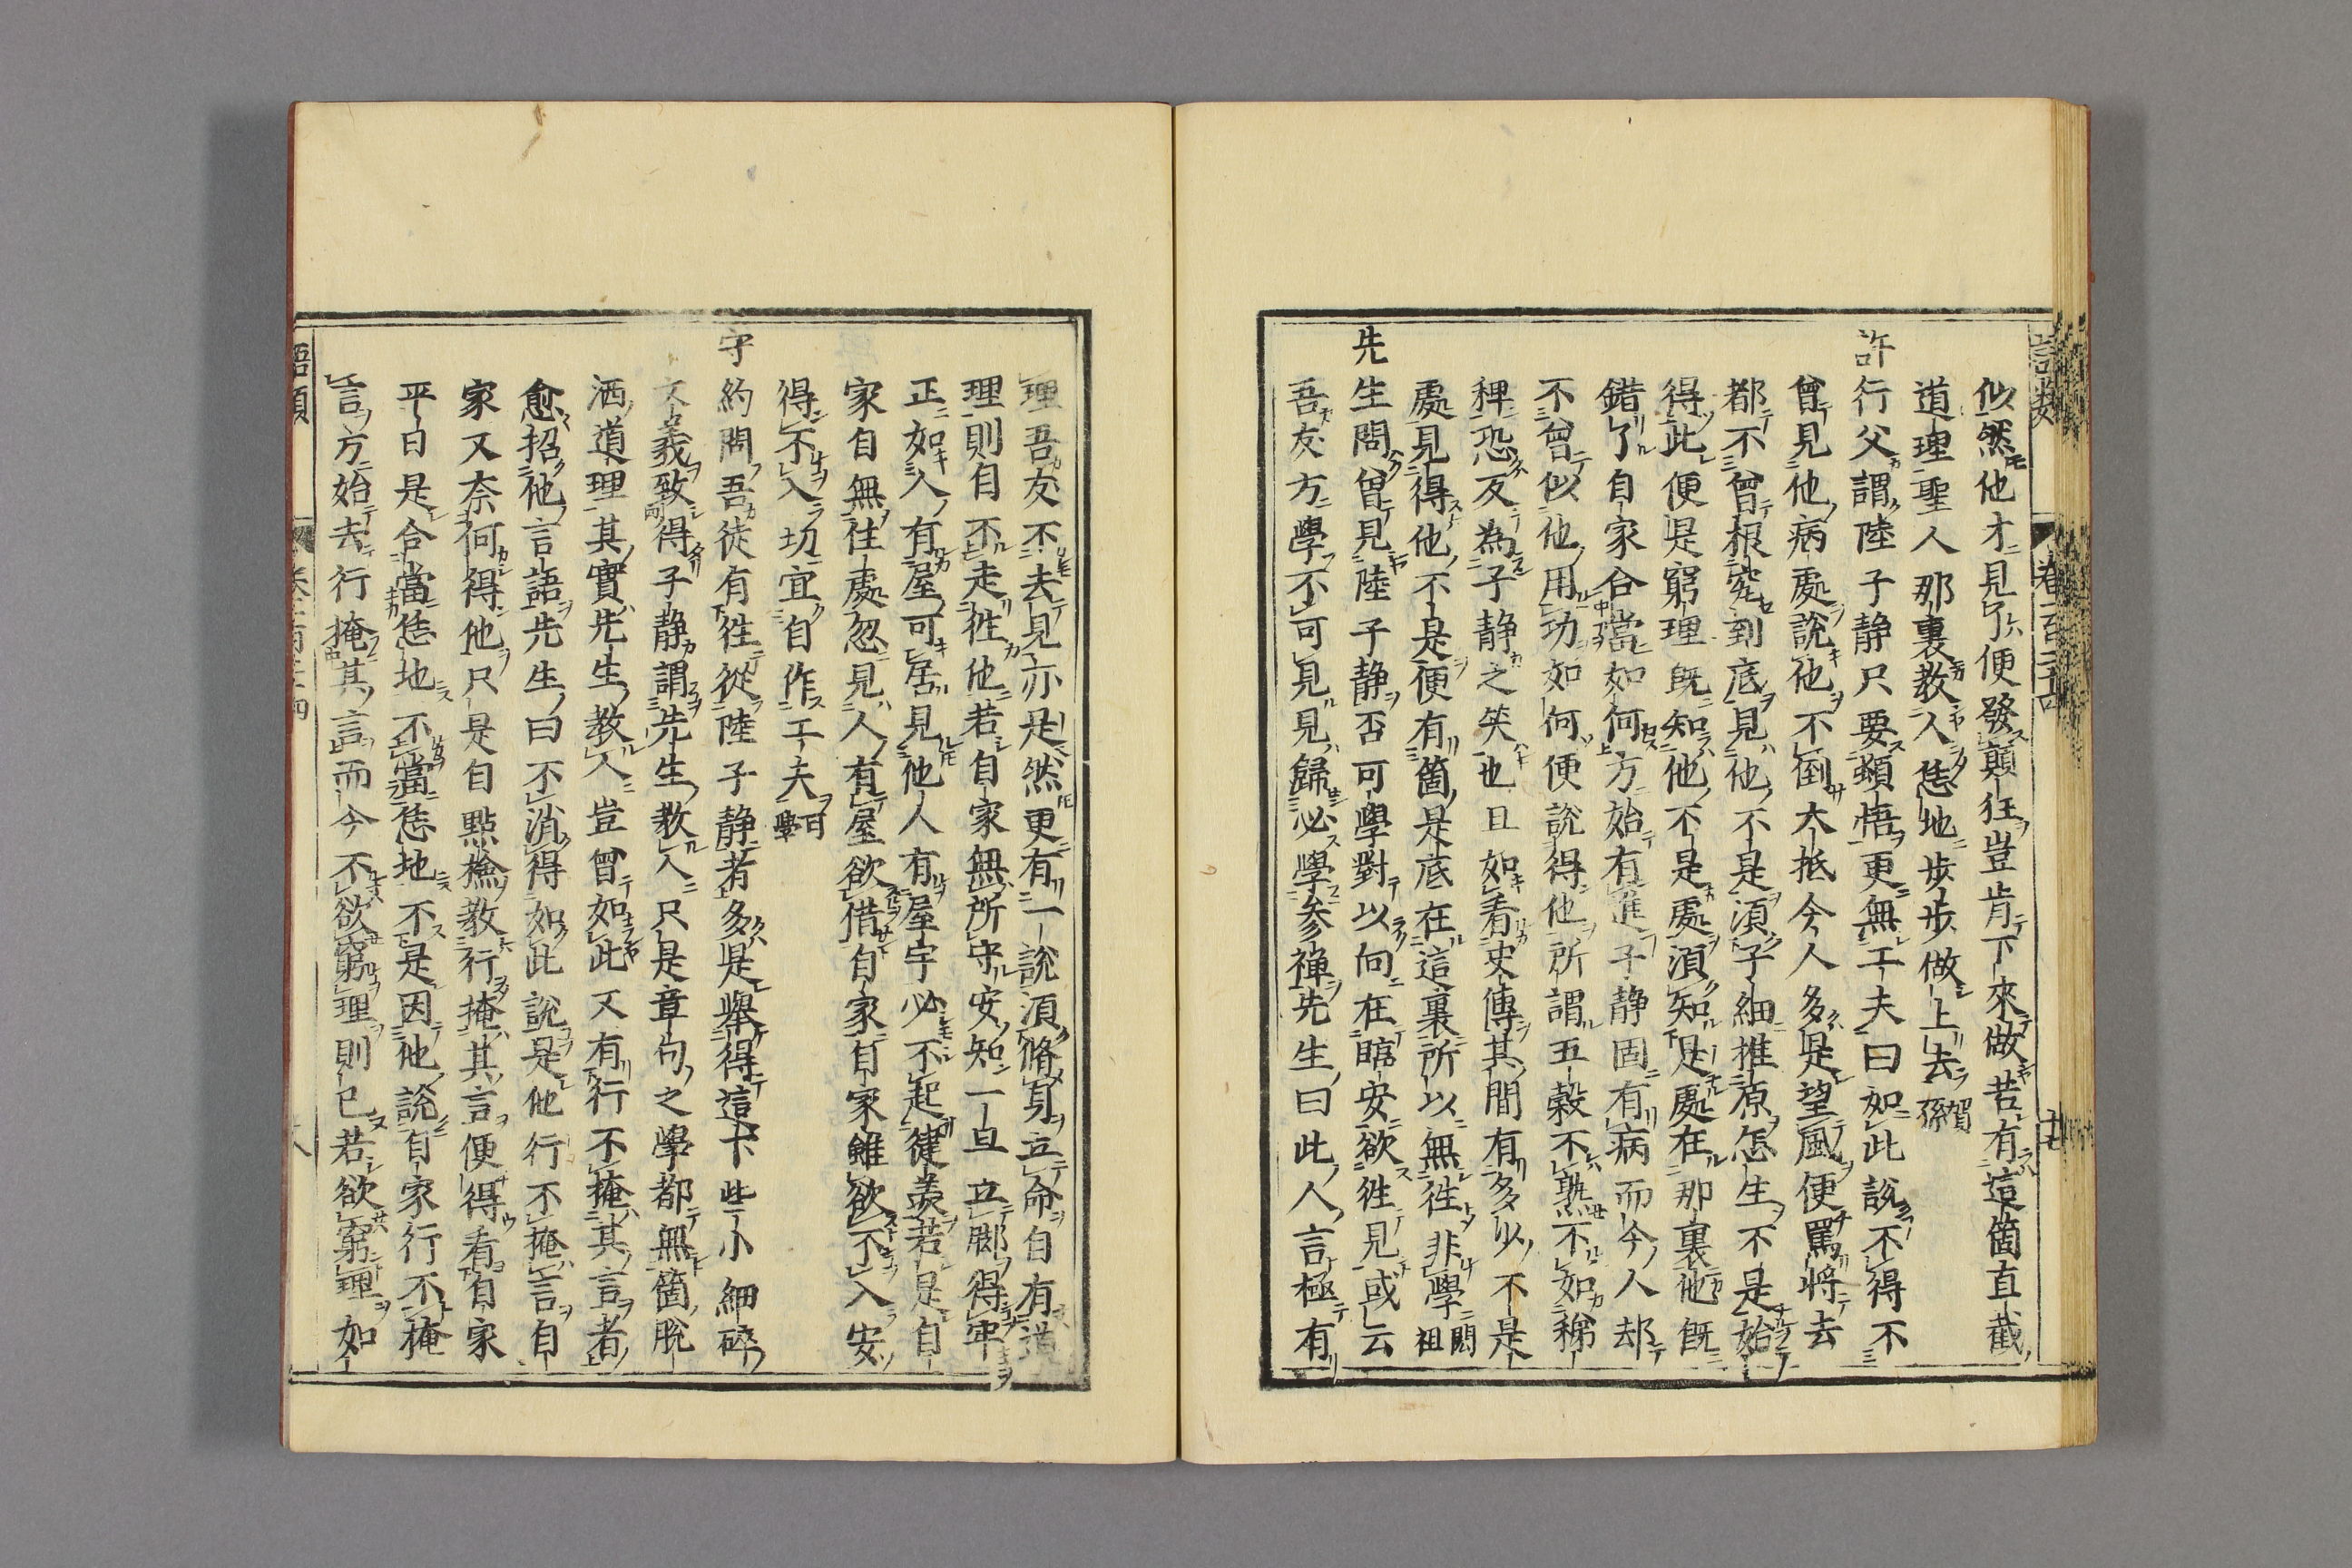 似然他才見了便發顛狂豈肯下來做若有這箇直截
道理聖人那裏教人恁地步步做上去賀孫
許行父謂陸子静只要頓悟更無工夫曰如此說不得不
曾見他病處說他不倒大抵今人多是望風便罵將去
都不曾根究到底見他不是須子細推原怎生不是始
得此便是窮理既知他不是處須知是處在那裏他既
錯了自家合當如何方始有進子静固有病而今人却
不曾似他用功如何便說得他所謂五穀不熟不如稊
稗恐反為子静之笑也且如看史傳其間有多少不是
處見得他不是便有箇是底在這裏所以無徃非學閎祖
先生問曾見陸子静否可學對以向在臨安欲徃見或云
吾友方學不可見見歸必學参禅先生曰此人言極有
理吾友不去見亦是然更有一說須脩身立命自有道
理則自不走徃他若自家無所守安知一旦立脚得牢
正如人有屋可居見他人有屋宇必不起健羡若是自
家自無住處忽見人有屋欲借自家自家雖欲不入安
得不入切宜自作工夫可學
守約問吾徒有徃從陸子静者多是舉得這下些小細碎
文義致得子静謂先生教人只是章句之學都無箇脫
洒道理其實先生教人豈曾如此又有行不掩其言者
愈招他言語先生曰不消得如此說是他行不掩言自
家又奈何得他只是自點檢教行掩其言便得看自家
平日是合當恁地不當恁地不是因他說自家行不掩
言方始去行掩其言而今不欲窮理則已若欲窮理如
語類
卷一百二十四